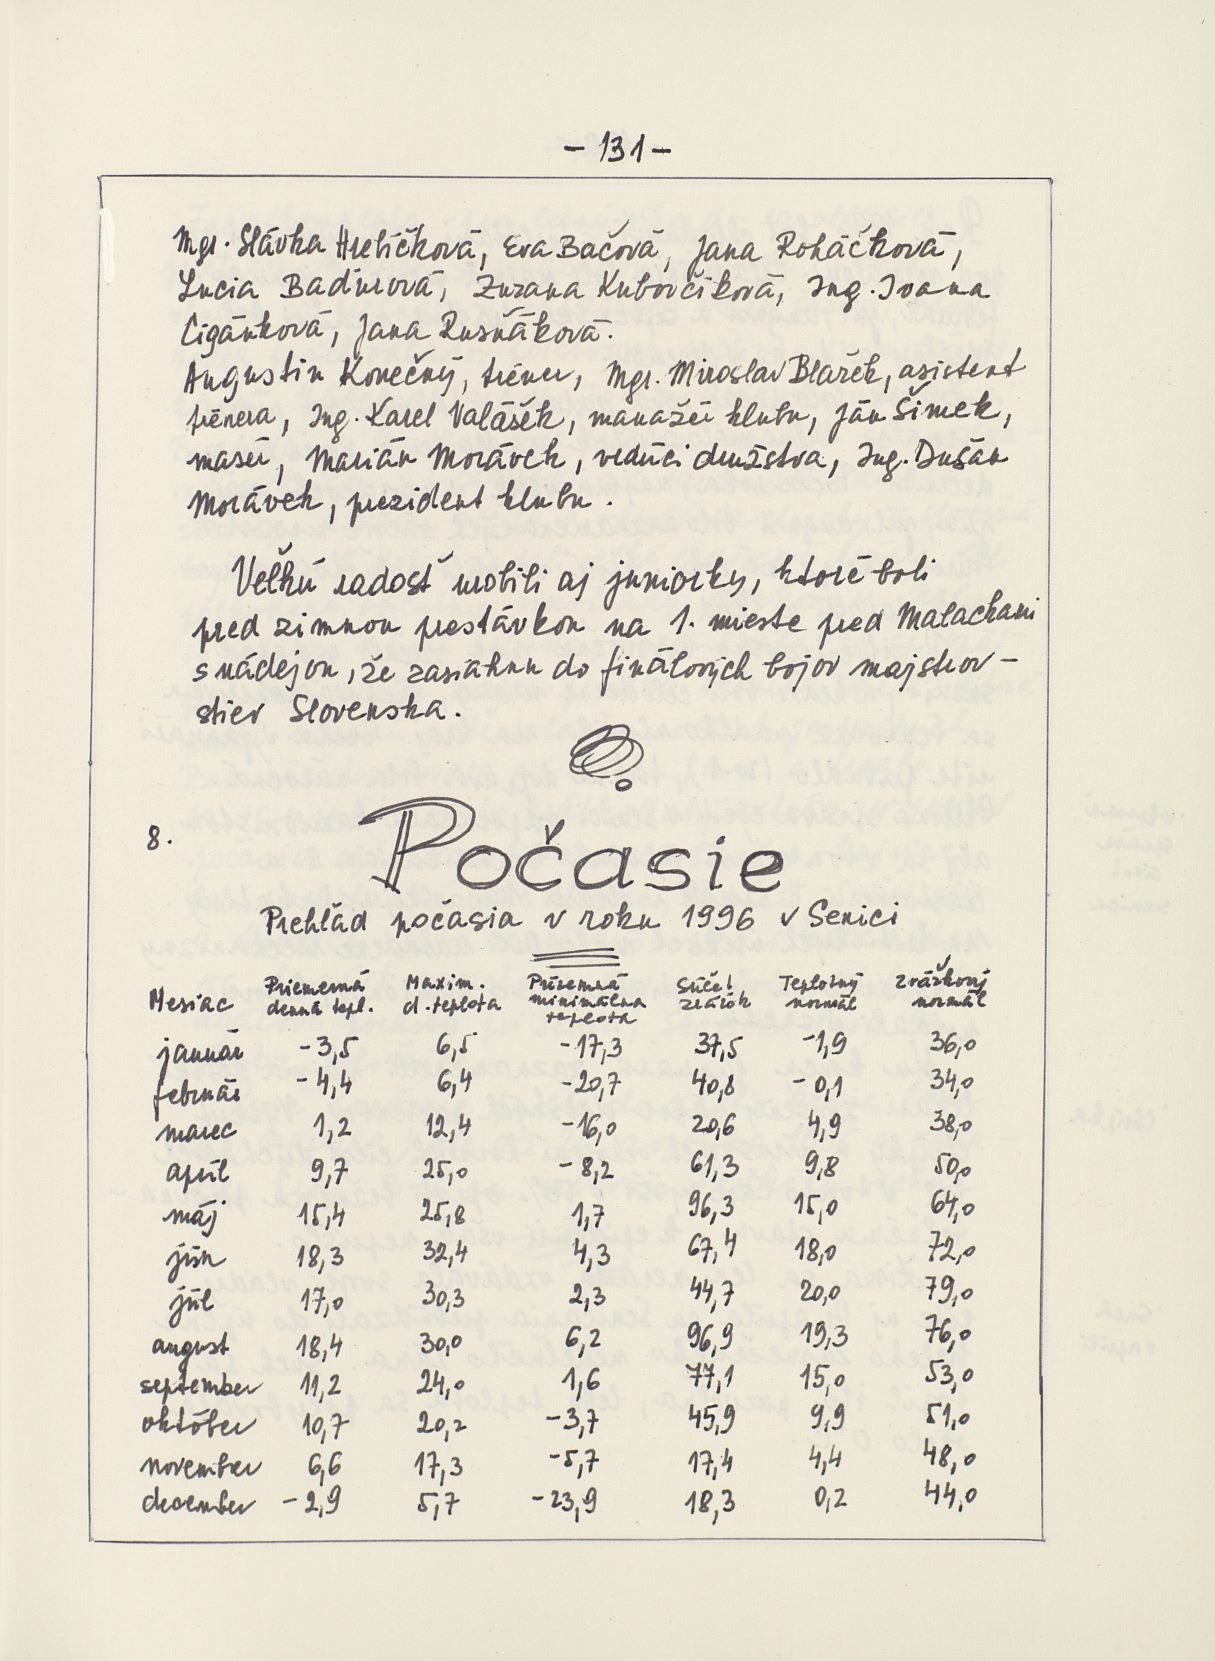 - 131 -
Mgr. Slávka Hrebíčková, Eva Bačová, Jana Roháčková,
Lucia Badinová, Zuzana Kubovčíková, Ing. Ivana
Cigánková, Jana Rusňáková.
Augustin Konečný, tréner, Mgr. Miroslav Blažek, asistent
trénera, Ing. Karel Valášek, manažér klubu, Ján Šimek,
masér, Marián Morávek, vedúci družstva, Ing. Dušan
Morávek, prezident klubu.
Veľkú radosť urobili aj juniorky, ktoré boli
pred zimnou prestávkou na 1. mieste pred Malackami
s nádejou, že zasiahnu do finálových bojov majstrov-
stiev Slovenska.
8.
Počasie
Prehľad počasia v roku 1996 v Senici
Mesiac Priemerná denná tepl. Maxim. d. teplota Prízemná minimálna teplota Súčet zrážok Teplotný normál Zrážkový normál
január -3,5 6,5 -17,3 37,5 -1,9 36,0
február -4,4 6,4 -20,7 40,8 -0,1 34,0
marec 1,2 12,4 -16,0 20,6 4,9 38,0
apríl 9,7 25,0 -8,2 61,3 9,8 50,0
máj 15,4 25,8 1,7 96,3 15,0 64,0
jún 18,3 32,4 4,3 67,4 18,0 72,0
júl 17,0 30,3 2,3 44,7 20,0 79,0
august 18,4 30,0 6,2 96,9 19,3 76,0
september 11,2 24,0 1,6 77,1 15,0 53,0
október 10,7 20,2 -3,7 45,9 9,9 51,0
november 6,6 17,3 -5,7 17,4 4,4 48,0
december -2,9 5,7 -23,9 18,3 0,2 44,0